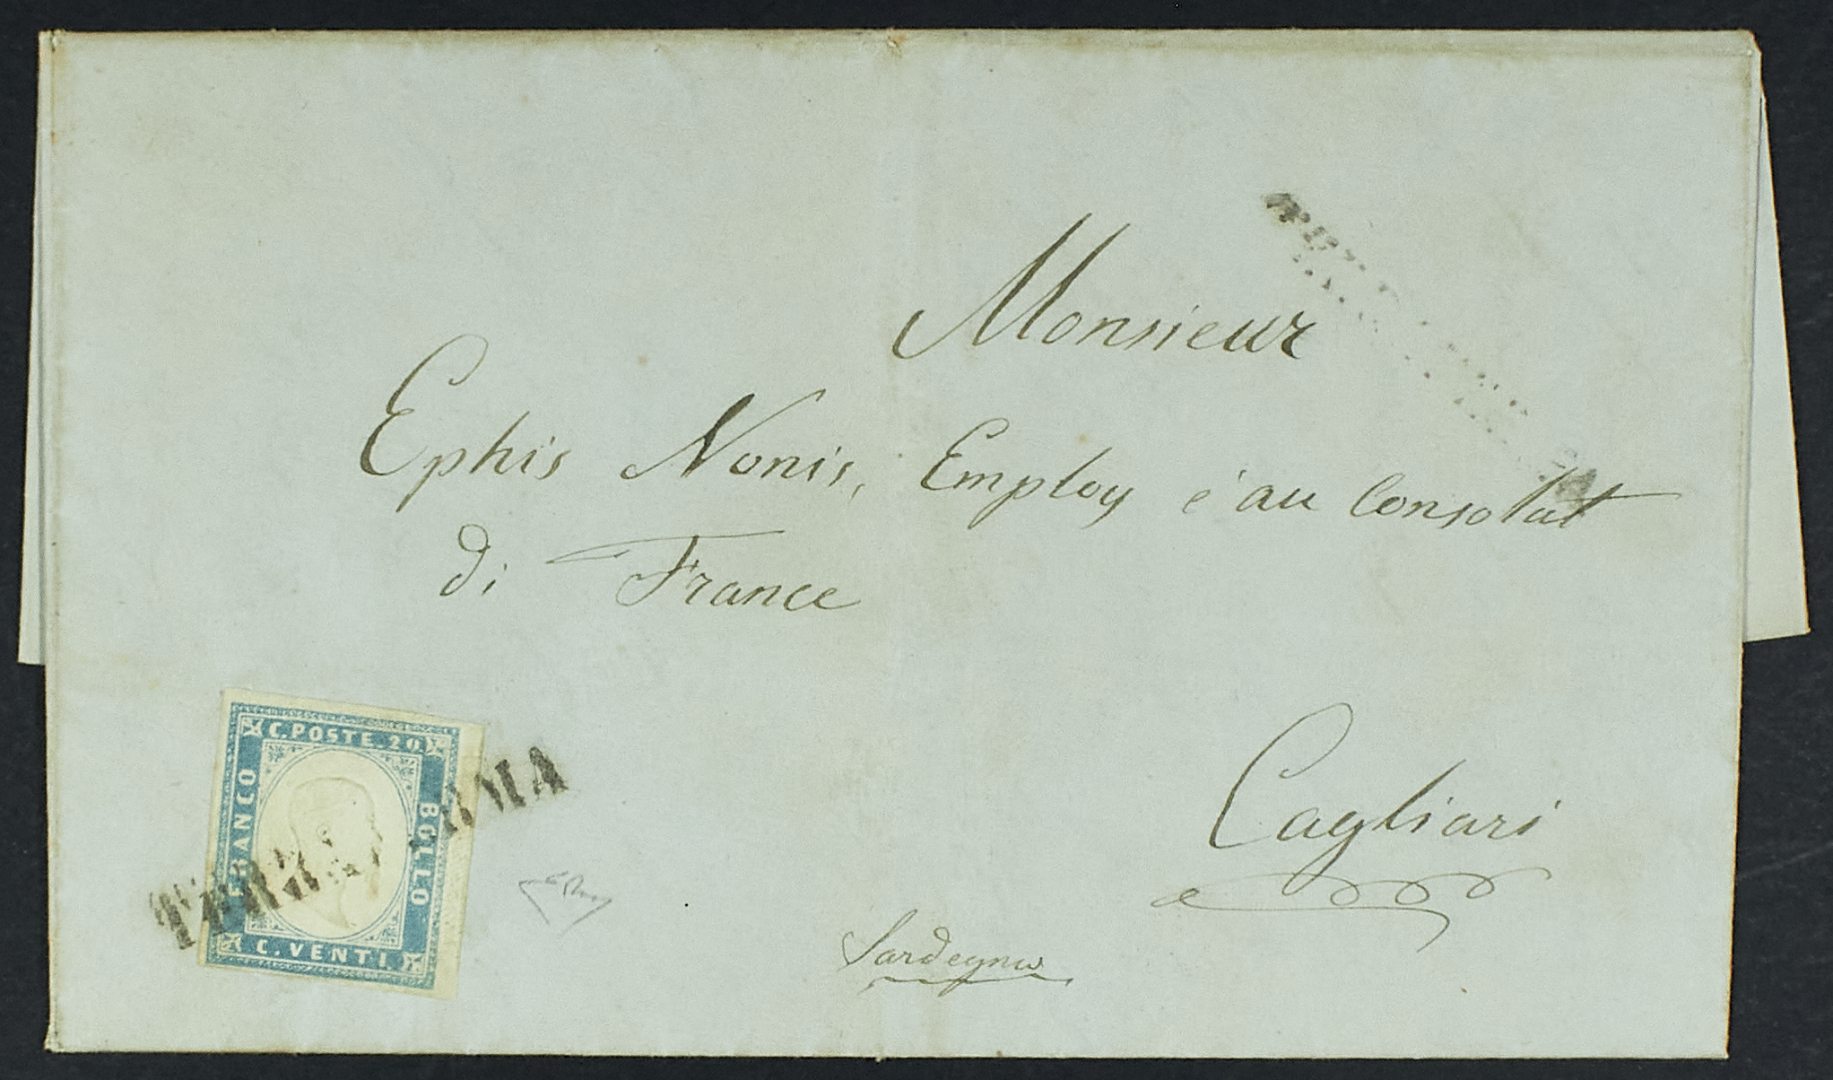 Monsieur
Ephis Nonis, Employé au Consolat
di France
Cagliari
Sardegna
C. POSTE. 20
FRANCO
BOLLO
C. VENTI.